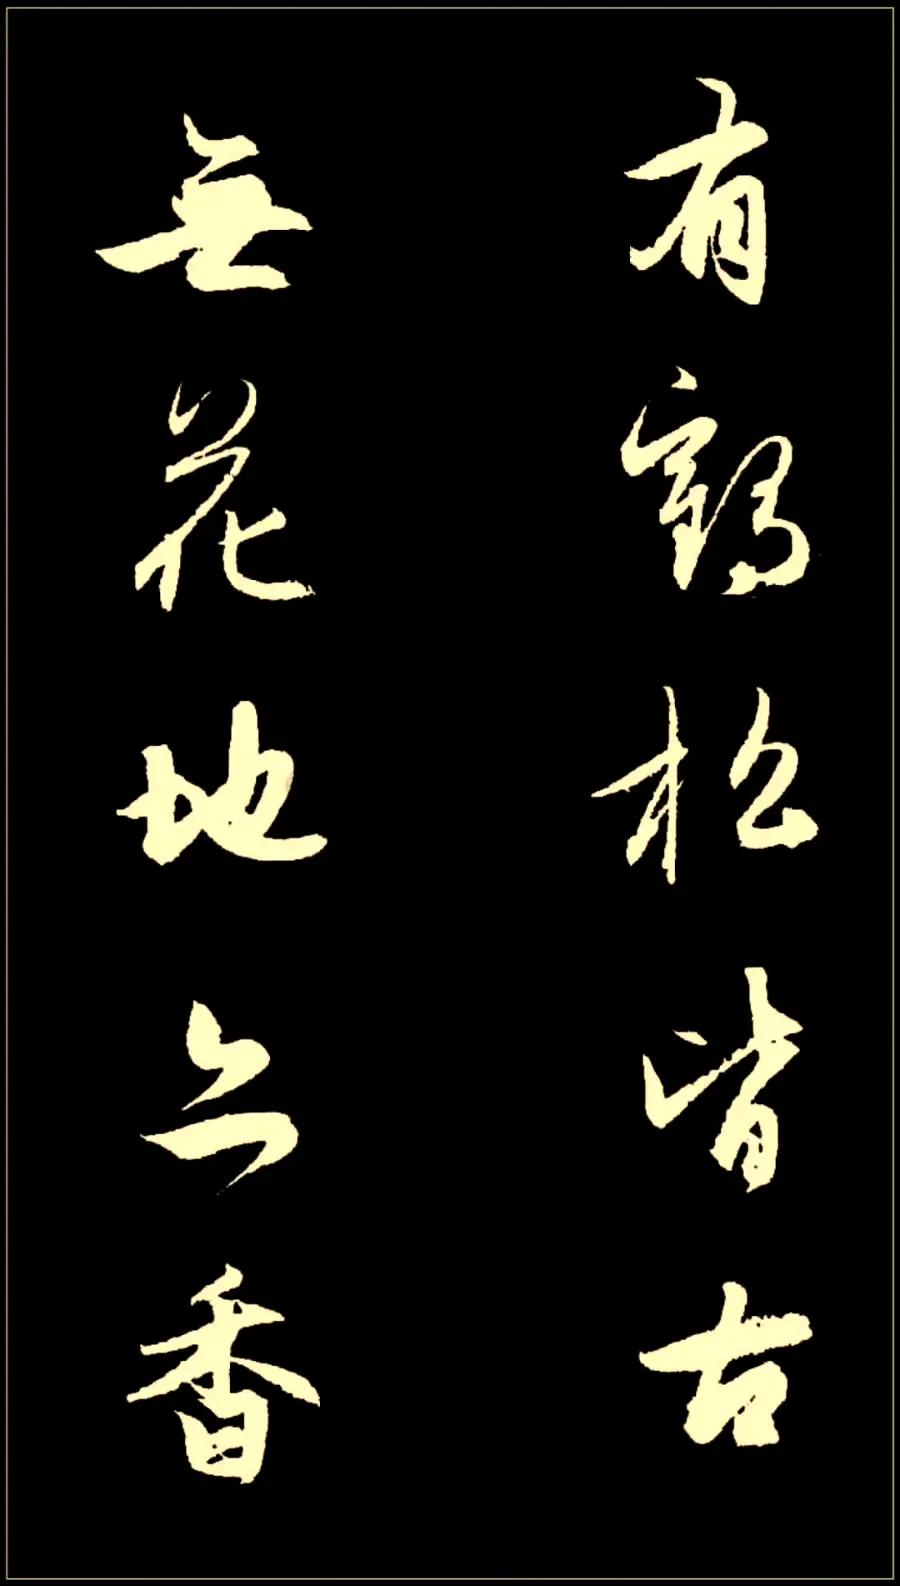 有鶴松皆古
無花地亦香